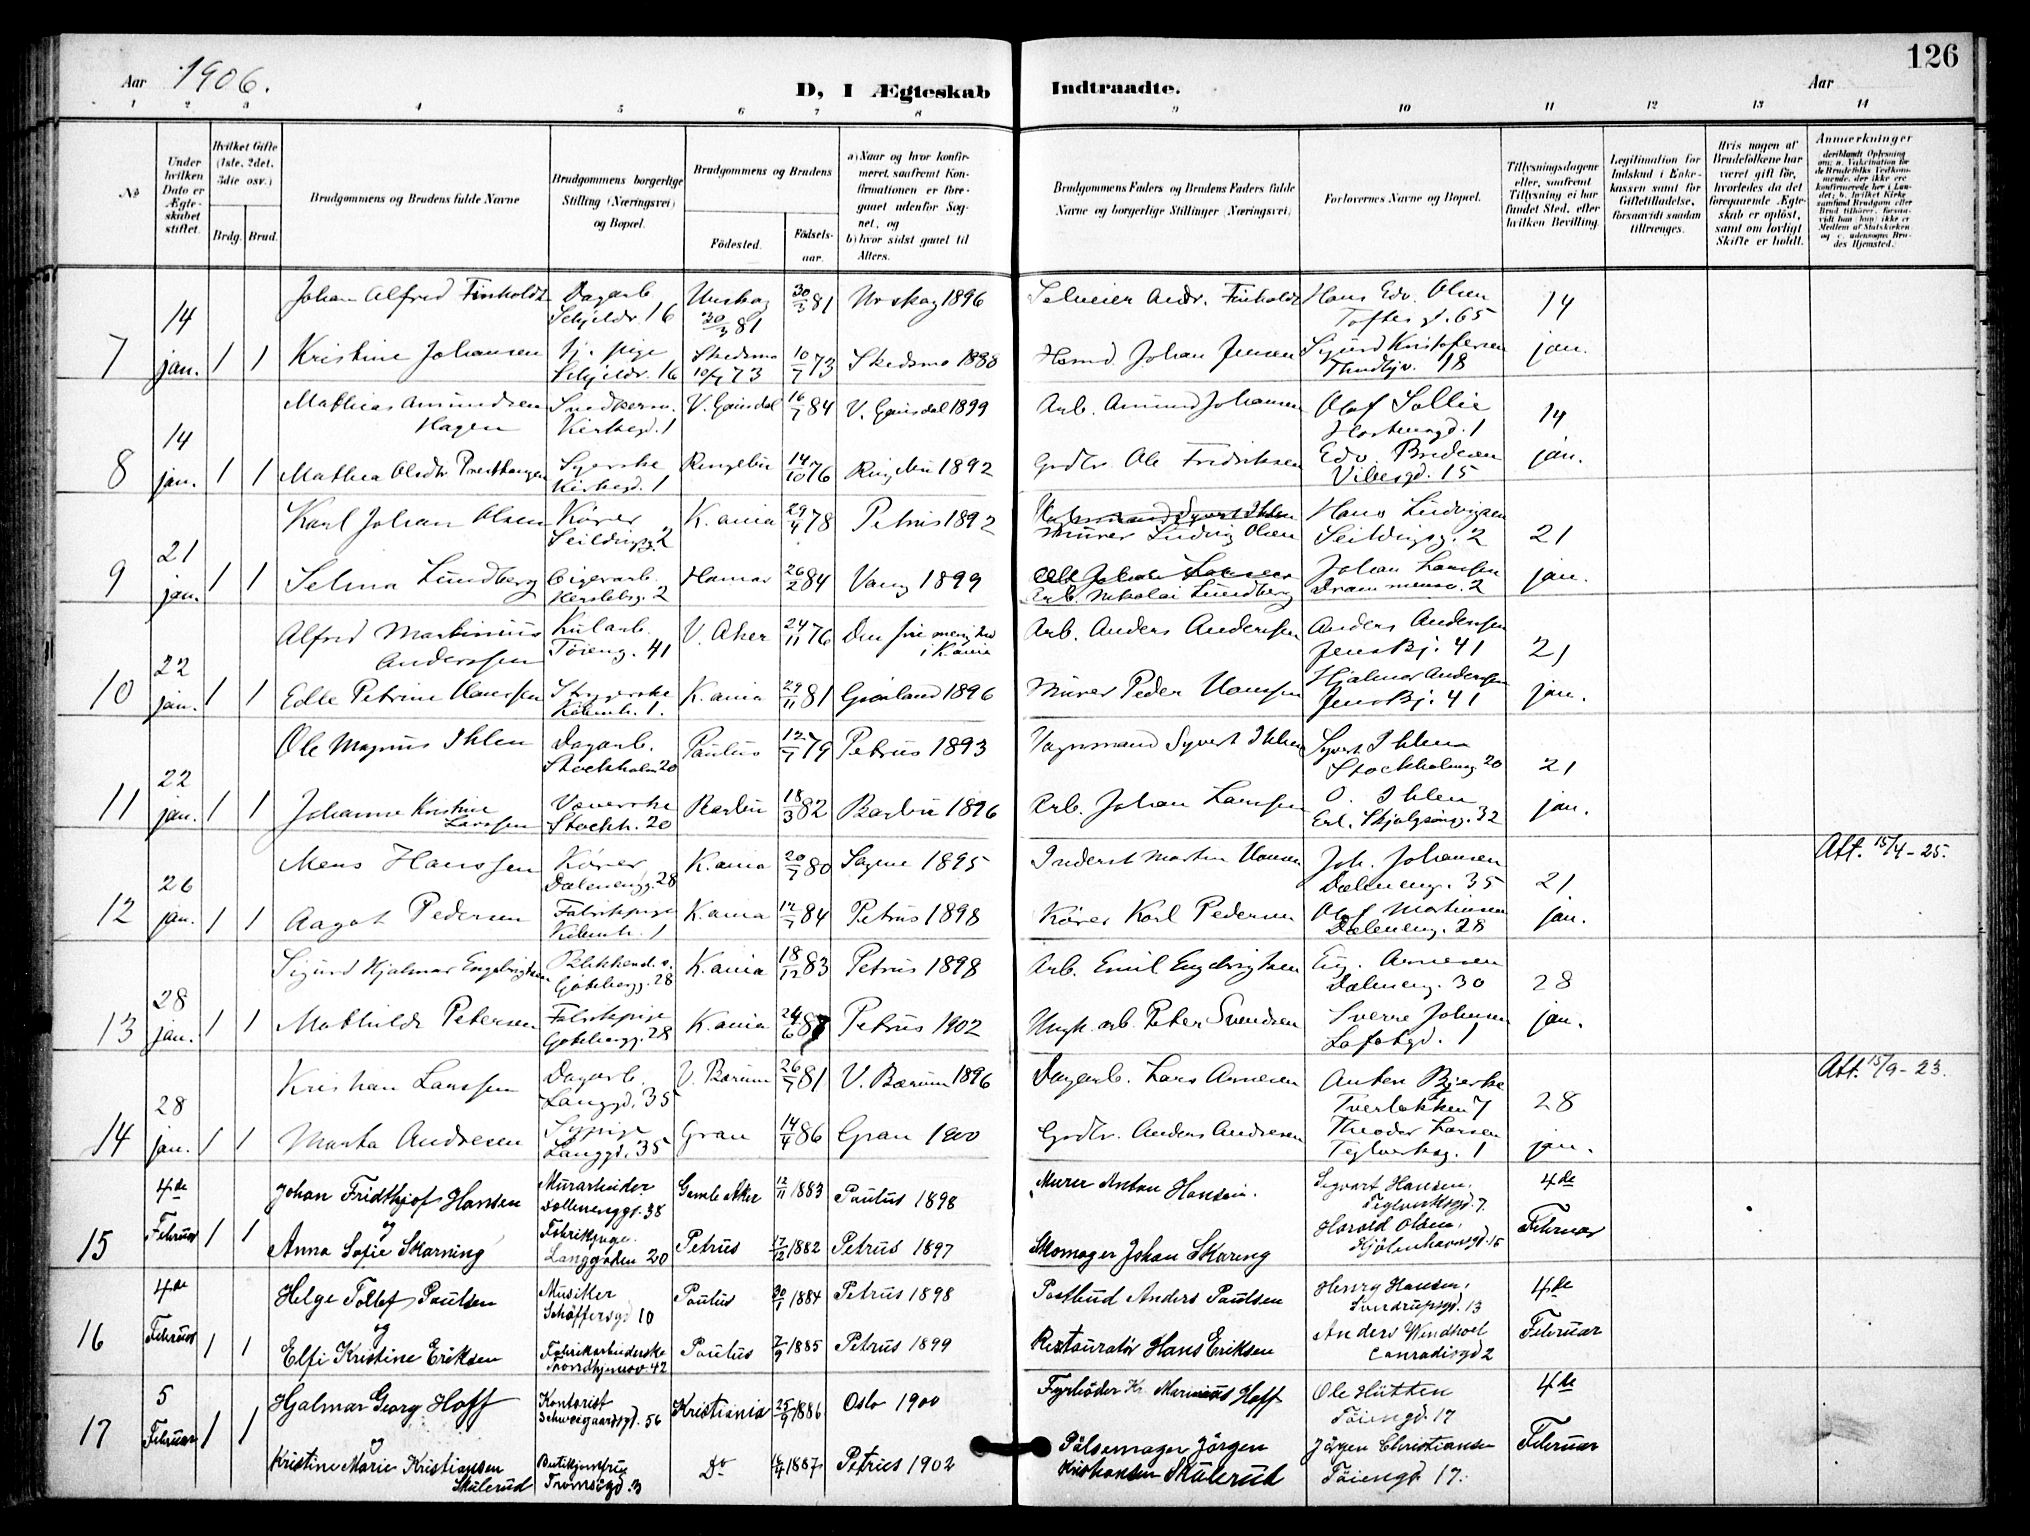 126
Aar 1906.
D, I Ægteskab Indtraadte.
Aar
1 2 3 4 5 6 7 8 9 10 11 12 13 14
No
Under hvilken Dato er Ægteskabet stiftet.
Hvilket Gifte (1ste, 2det, 3die osv.)
Brdg. Brud.
Brudgommens og Brudens fulde Navne
Brudgommens borgerlige Stilling (Næringsvei) og Bopæl.
Brudgommens og Brudens
Fødested. Fødselsaar.
a) Naar og hvor konfirmeret, saafremt Konfirmationen er foregaaet udenfor Sognet, og
b) hvor sidst gaaet til Alters.
Brudgommens Faders og Brudens Faders fulde Navne og borgerlige Stillinger (Næringsvei)
Forlovernes Navne og Bopæl.
Tillysningsdagene eller, saafremt Tillysning ei har fundet Sted, efter hvilken Bevilling.
Legitimation for Indskud i Enkekassen samt for Giftetilladelse, forsaavidt saadan tiltrænges.
Hvis nogen af Brudefolkene har været gift før, hvorledes da det foregaaende Ægteskab er opløst, samt om lovligt Skifte er holdt.
Anmærkninger
7 14 jan. 1 1
Johan Alfred Finholdt Dagarb. Schjeldr. 16 Urskog 30/3 81 30/3 81 Urskog 1896 Selveier Andr. Finholdt Hans Edv. Olsen Toftesg. 65 14
Kristine Johansen tj. pige Schjeldr. 16 Skedsmo 10/7 73 10/7 73 Skedsmo 1888 Husmd. Johan Jensen Sigurd Kristofersen Trndhjv. 18 jan.
8 14 jan. 1 1
Mathias Amundsen Hagen Snedkersv. Kirkegd. 1 V. Gausdal 16/7 84 V. Gausdal 1899 Arb. Amund Johansen Olaf Sollie 14
Mathea Olsdtr. Præsthaugen Syerske Kirkegd. 1 Ringebu 14/10 76 Ringebu 1892 Grdbr. Ole Fredriksen Edv. Bredesen Vibesgd. 15 jan.
9 21 jan. 1 1
Karl Johan Olsen Kører Seildugsg. 2 K.ania 29/4 78 Petrus 1892 Vognmand Syvert Ihlen Murer Ludvig Olsen Hans Ludvigsen Seildugsg. 2 21
Selma Lundberg Cigararb. Herslebg. 2 Hamar 26/2 84 Vang 1899 Arb. Johan Larssen Arb. Nikolai Lundberg Johan Larssen Drammensv. 2 jan.
10 22 jan. 1 1
Alfred Martinius Anderssen Kularb. Tøieng. 41 V. Aker 24/11 76 Den fri menighed i K.ania Arb. Anders Anderssen Anders Anderssen Jensbj. 41 21
Edle Petrine Hanssen Strygerske Københ. 1. K.ania 29/11 81 Grønland 1896 Murer Peder Hanssen Hjalmar Anderssen Jensbj. 41 jan.
11 22 jan. 1 1
Ole Magnus Ihlen Dagarb. Stockholm 20 Paulus 12/7 79 Petrus 1893 Vognmand Syvert Ihlen Syvert Ihlen Stockholmg 20 21
Johanne Kristine Larssen Væverske Stockh. 20 Barbu 18/3 82 Barbu 1896 Arb. Johan Larssen O. Ihlen Erl. Skjalgsøng. 32 jan.
12 26 jan. 1 1
Mens Hanssen Kører Dælenengg. 28 K.ania 20/7 80 Sagene 1895 Inderst Martin Hansen Joh. Johansen Dæleneng. 35 21 Att. 15/4-25.
Aagot Pedersen Fabrikpige Københ. 1 K.ania 12/7 84 Petrus 1898 Kører Karl Pedersen Olaf Martinsen Dæleneng. 28 jan.
13 28 jan. 1 1
Sigurd Hjalmar Engebrigtsen Blikkensl.s. Gøtebergg. 28 K.ania 18/12 83 Petrus 1898 Arb. Emil Engebrigtsen Eug. Arnesen Dæleneng. 30 28
Mathilde Petersen Fabrikpige Gøtebergg. 28 K.ania 24/6 87 Petrus 1902 Arb. Peter Svendsen Sverre Johnsen Lofotgd. 1 jan.
14 28 jan. 1 1
Kristian Larssen Dagarb. Langgd. 35 V. Bærum 26/7 81 V. Bærum 1896 Dagarb. Lars Arnesen Anton Bjerke Tverbakken 7 28 Att. 15/9-23.
Marta Andresen Sypige Langgd. 35 Gran 14/4 86 Gran 1900 Grdbr. Anders Andresen Theodor Larsen Teglverksg. 1 jan.
15 4de Februar 1 1
Johan Fridthjof Hansen Murarbeider Dælenenggt. 38 Gamle Aker 12/11 1883 Paulus 1898 Murer Anton Hansen. Sigvart Hansen. Teglverksgd. 7. 4de
og
Anna Sofie Skarning Fabrikpige. Langgaden 20 Petrus 17/12 1882 Petrus 1897 Skomager Johan Skaring Harald Olsen. Kjøbenhavnsgd. 15 Februar
16 4de Februar 1 1
Helge Tollef Paulsen Musiker Schøffersgd 10 Paulus 30/1 1884 Petrus 1898 Postbud Anders Paulsen Henry Hansen. Sverdrupsgd. 13 4de
og
Elfi Kristine Eriksen Fabrikarbeiderske Trondhjemsv. 42 Paulus 7/9 1885 Petrus 1899 Restauratør Hans Eriksen Anders Windhoel Conradisgd 2 Februar
17 5 Februar 1 1
Hjalmar Georg Hoff Kontorist Schweigaardsgd. 56 Kristiania 25/9 1886 Oslo 1900 Fyrbøder Kr. Marinius Hoff Ole Hütten Tøiengd. 17 4de
og
Kristine Marie Kristiansen Skulerud Butikjomfru Tromsøgd. 3 Do 16/4 1887 Petrus 1902 Pølsemager Jørgen Kristiansen Skulerud Jørgen Christiansen Tøiengd. 17. Februar